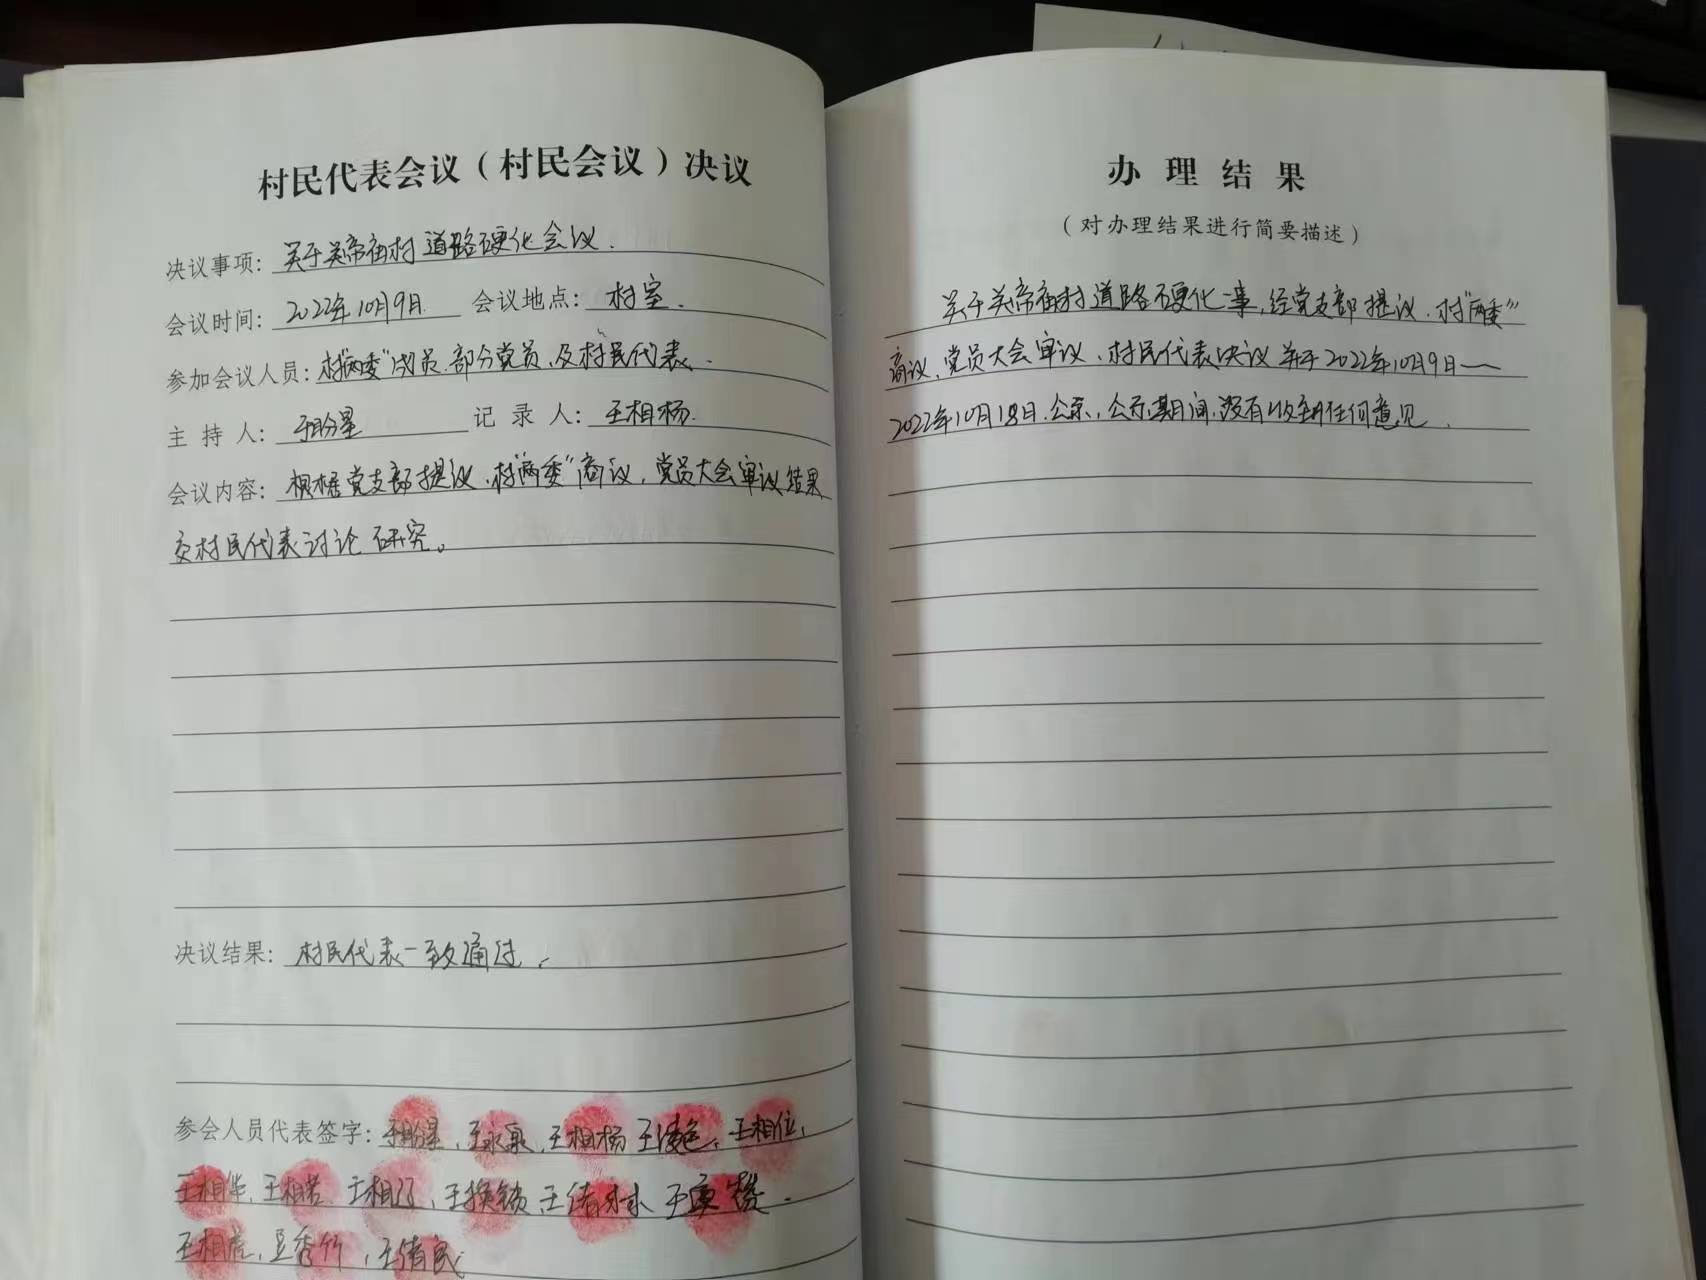 村民代表会议（村民会议）决议
决议事项：关于关帝庙村道路硬化会议.
会议时间：2022年10月9日. 会议地点：村室.
参加会议人员：村"两委"成员.部分党员,及村民代表.
主持人： 记录人：王相杨.
会议内容：根据党支部提议.村"两委"商议,党员大会审议结果
交村民代表讨论研究。
决议结果：村民代表一致通过.
参会人员代表签字： 王永泉, 王相杨 王相位,
王相华, 王换锁
王相虎, 豆秀竹, 王清民.
办理结果
（对办理结果进行简要描述）
关于关帝庙村道路硬化一事,经党支部提议.村"两委"
商议,党员大会审议,村民代表决议并于2022年10月9日——
2022年10月18日.公示,公示期间,没有收到任何意见.